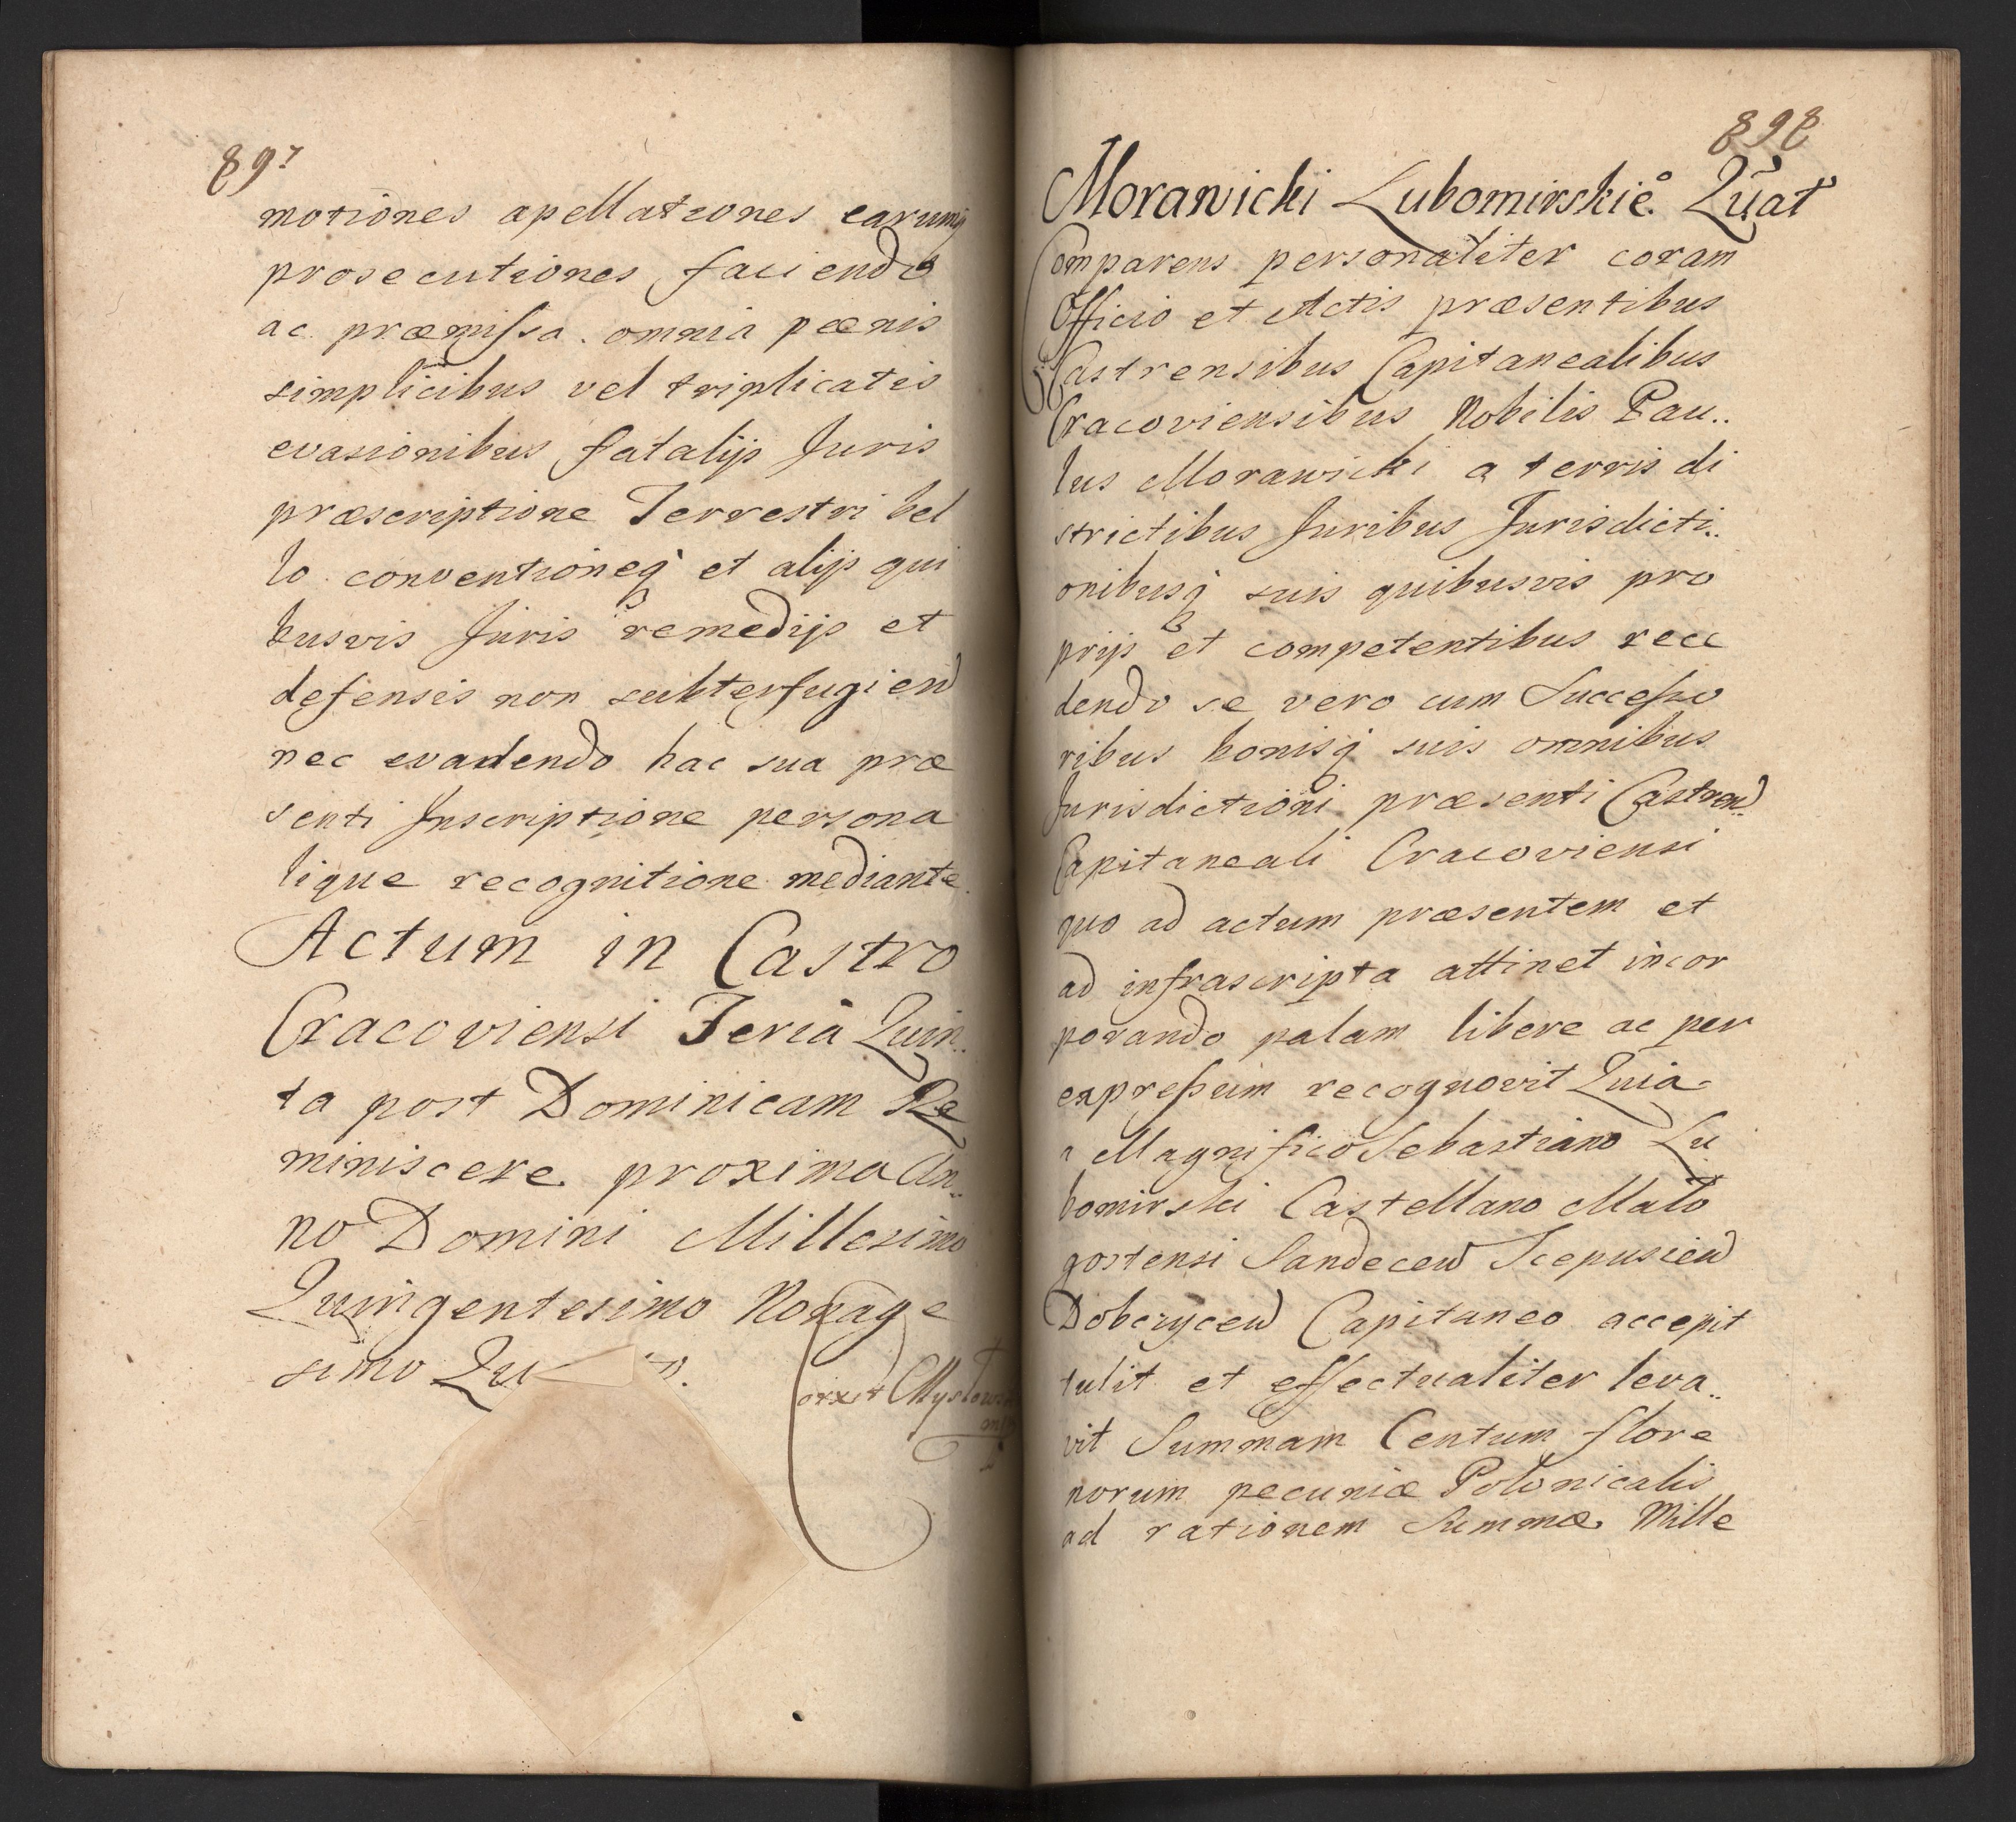 897
motiones apellationes earumq
prosecutiones faciendo
ac præmissa omnia pœnis
simplicibus vel triplicatis
evasionibus fatalijs Juris
præscriptione Terrestri bel
lo conventioneq et alijs qui
busvis Juris remedijs et
defensis non subterfugiend
nec evadendo hac sua præ
senti Inscriptione persona
lique recognitione mediante.
Actum in Castro
Cracoviensi Feria Quin..
ta post Dominicam Re
miniscere proxima An..
no Domini Millesimo
Quingentesimo Nonage
simo
898
Morawicki Lubomirskie.º Quat
Comparens personaliter coram
Officio et Actis præsentibus
Castrensibus Capitanealibus
Cracoviensibus Nobilis Pau..
lus Morawicki a terris di
strictibus Juribus Jurisdicti..
onibusq suis quibusvis pro
prijs et competentibus rece
dendo se vero cum Successo
ribus bonisq suis omnibus
Jurisdictioni præsenti Castren..
Capitaneali Cracoviensi
quo ad actum præsentem et
ad infrascripta attinet incor
porando palam libere ac per
expressum recognovit Quia
a Magnifico Sebastiano Lu
bomirski Castellano Malo
gostensi Sandecen Scepusien
Dobczycen Capitaneo accepit
tulit et effectualiter leva..
vit Summam Centum flore
norum pecuniæ Polonicalis
ad rationem Summæ Mille